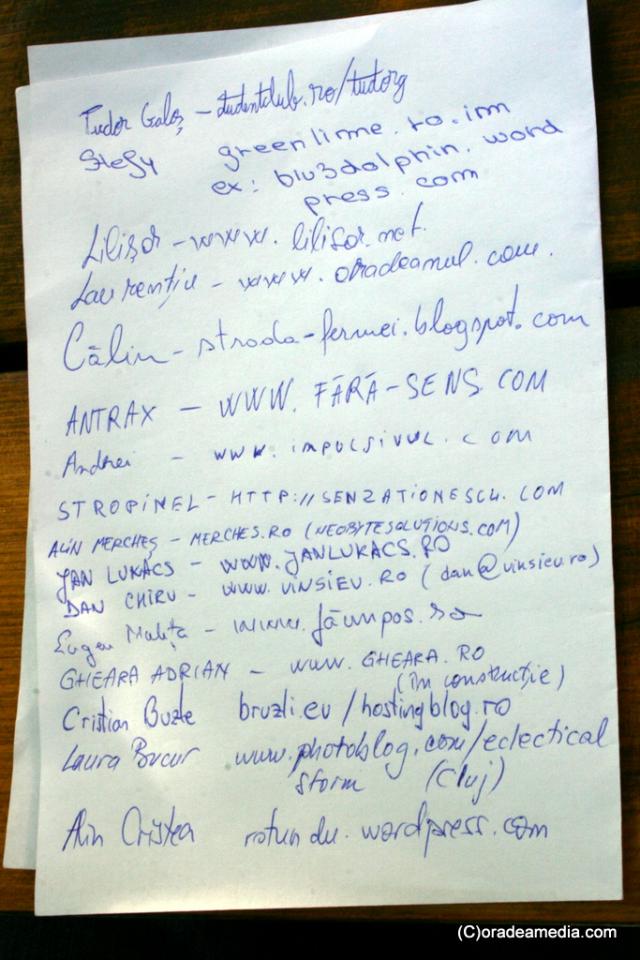 Tudor Galoș - studentclub.ro/tudorg
Stefy greenlime.ro.im
ex: blu3dolphin.word
press.com
Lilișor - www.lilisor.net.
Laurențiu - www.oradeanul.com.
Călin - strada-fermei.blogspot.com
ANTRAX - WWW.FĂRĂ-SENS.COM
Andrei - www.impulsivul.com
STROPINEL - HTTP://SENZATIONESCU.COM
ALIN MERCHEȘ - MERCHES.RO (NEOBYTESOLUTIONS.COM)
JAN LUKÁCS - WWW.JANLUKACS.RO
DAN CHIRU - WWW.VINSIEU.RO (dan@vinsieu.ro)
Eugen - www.
GHEARA ADRIAN - www.GHEARA.RO
(în construcție)
Cristian Buzle bruzli.eu/hostingblog.ro
Laura Bucur www.photoblog.com/eclectical
storm (Cluj)
Alin Cristea rotundu.wordpress.com
(C)oradeamedia.com